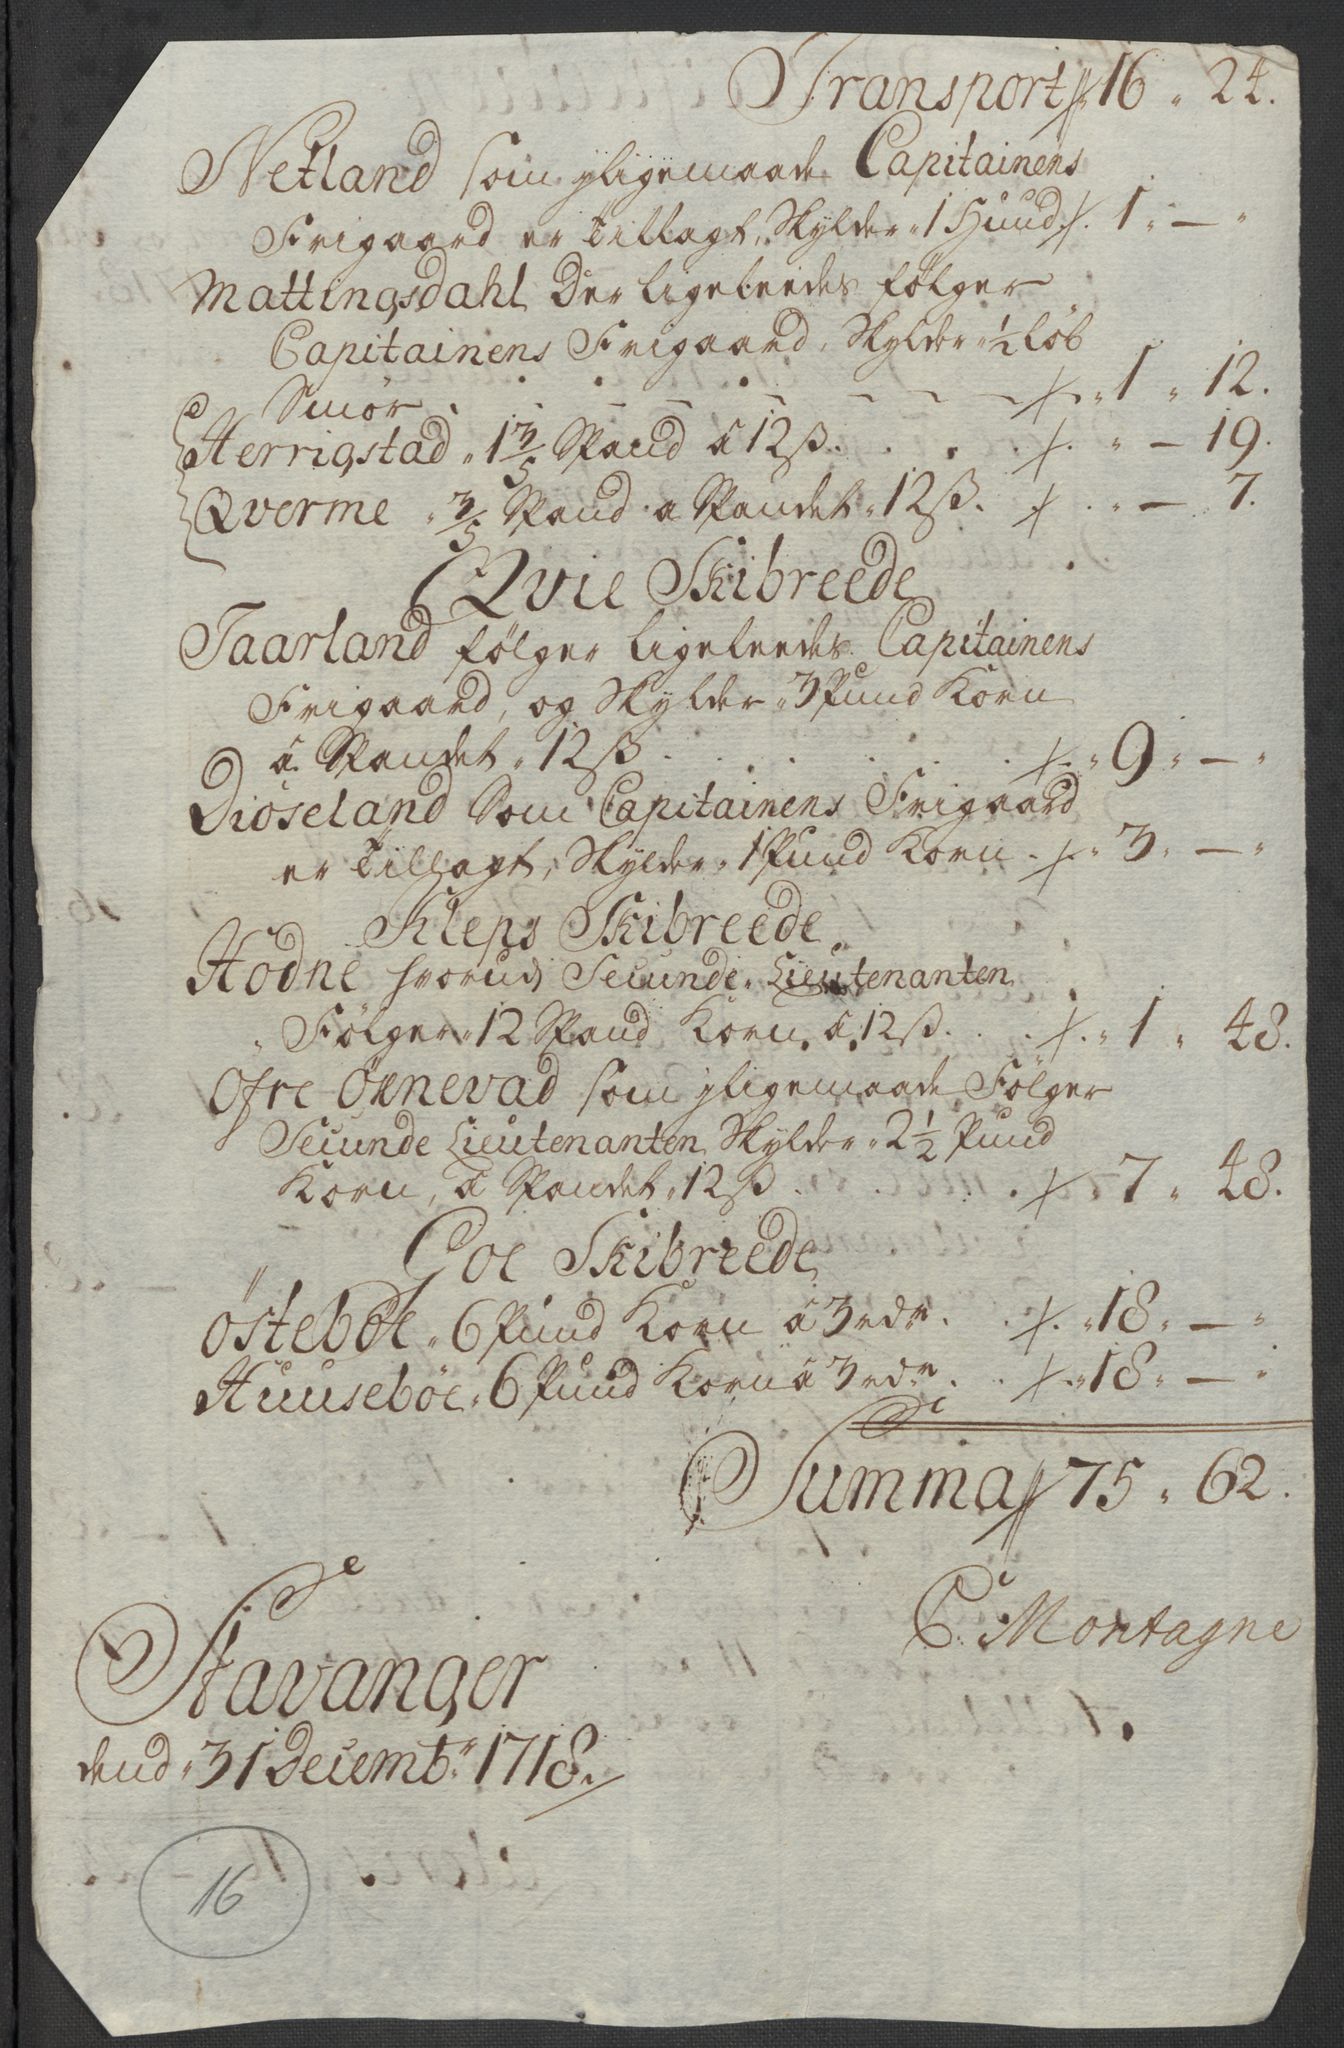 Transport // 16 „ 24.
Netland som jligemaade Capitainens
Friigaard er Tillagt, Skylder „ 1 Huud /. 1 „ — „
Mattingsdahl Der ligeleedes følger
Capitainens Friigaard, Skylder „ 1/2 Løb
Smør . . . . . . . /. „ 1 „ 12.
Herrigstad „ 1 3/5 Spand â 12 ß. . . /. „ — 19.
Qverme „ 3/5 Spand a Spandet „ 12 ß. /. „ — 7.
Qvie Skibreede
Taarland følger ligeleedes Capitainens
Friigaard, og Skylder „ 3 Pund Korn
â Spandet „ 12 ß . . . . /. „ 9 „ — „
Diöseland Som Capitainens Friigaard
er Tillagt, Skylder „ 1 Pund Korn . /. „ 3 „ — „
Kleps Skibreede
Hödne hvorudj Secunde Lieutenanten
Følger „ 12 Spand Korn â 12 ß . . /. „ 1 „ 48.
Öfre Öxnevad som jligemaade Følger
Secunde Lieutenanten Skylder „ 2 1/2 Pund
Korn, â Spandet „ 12 ß . . . /. 7 „ 48.
Goe Skibreede
Östeböe „ 6 Pund Korn â 3 rdr. . /. „ 18 „ — „
Huuseböe „ 6 Pund Korn â 3 rdr . . /. „ 18 „ — „
Summa // 75 „ 62.
C. Montagne
Stavanger
dend „ 31 Decembr. 1718.
16